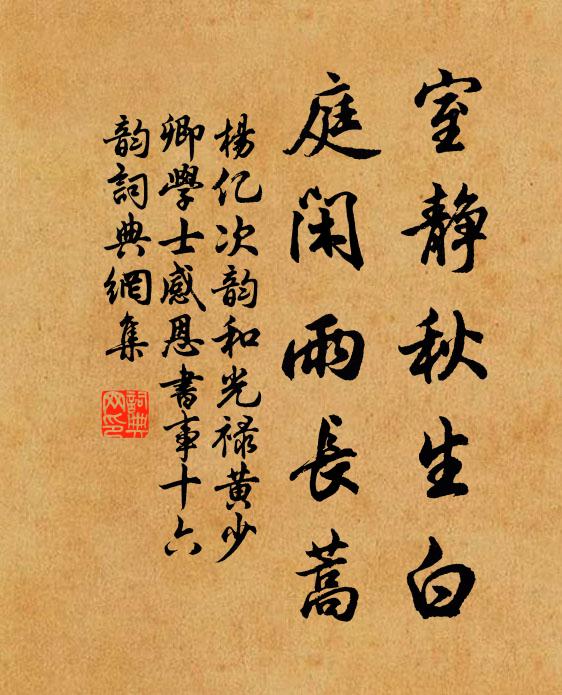 室靜秋生白
庭閑雨長蒿
楊億次韵和光禄黃少
卿學士感恩書事十六
韵詞典網集
詞典
网印